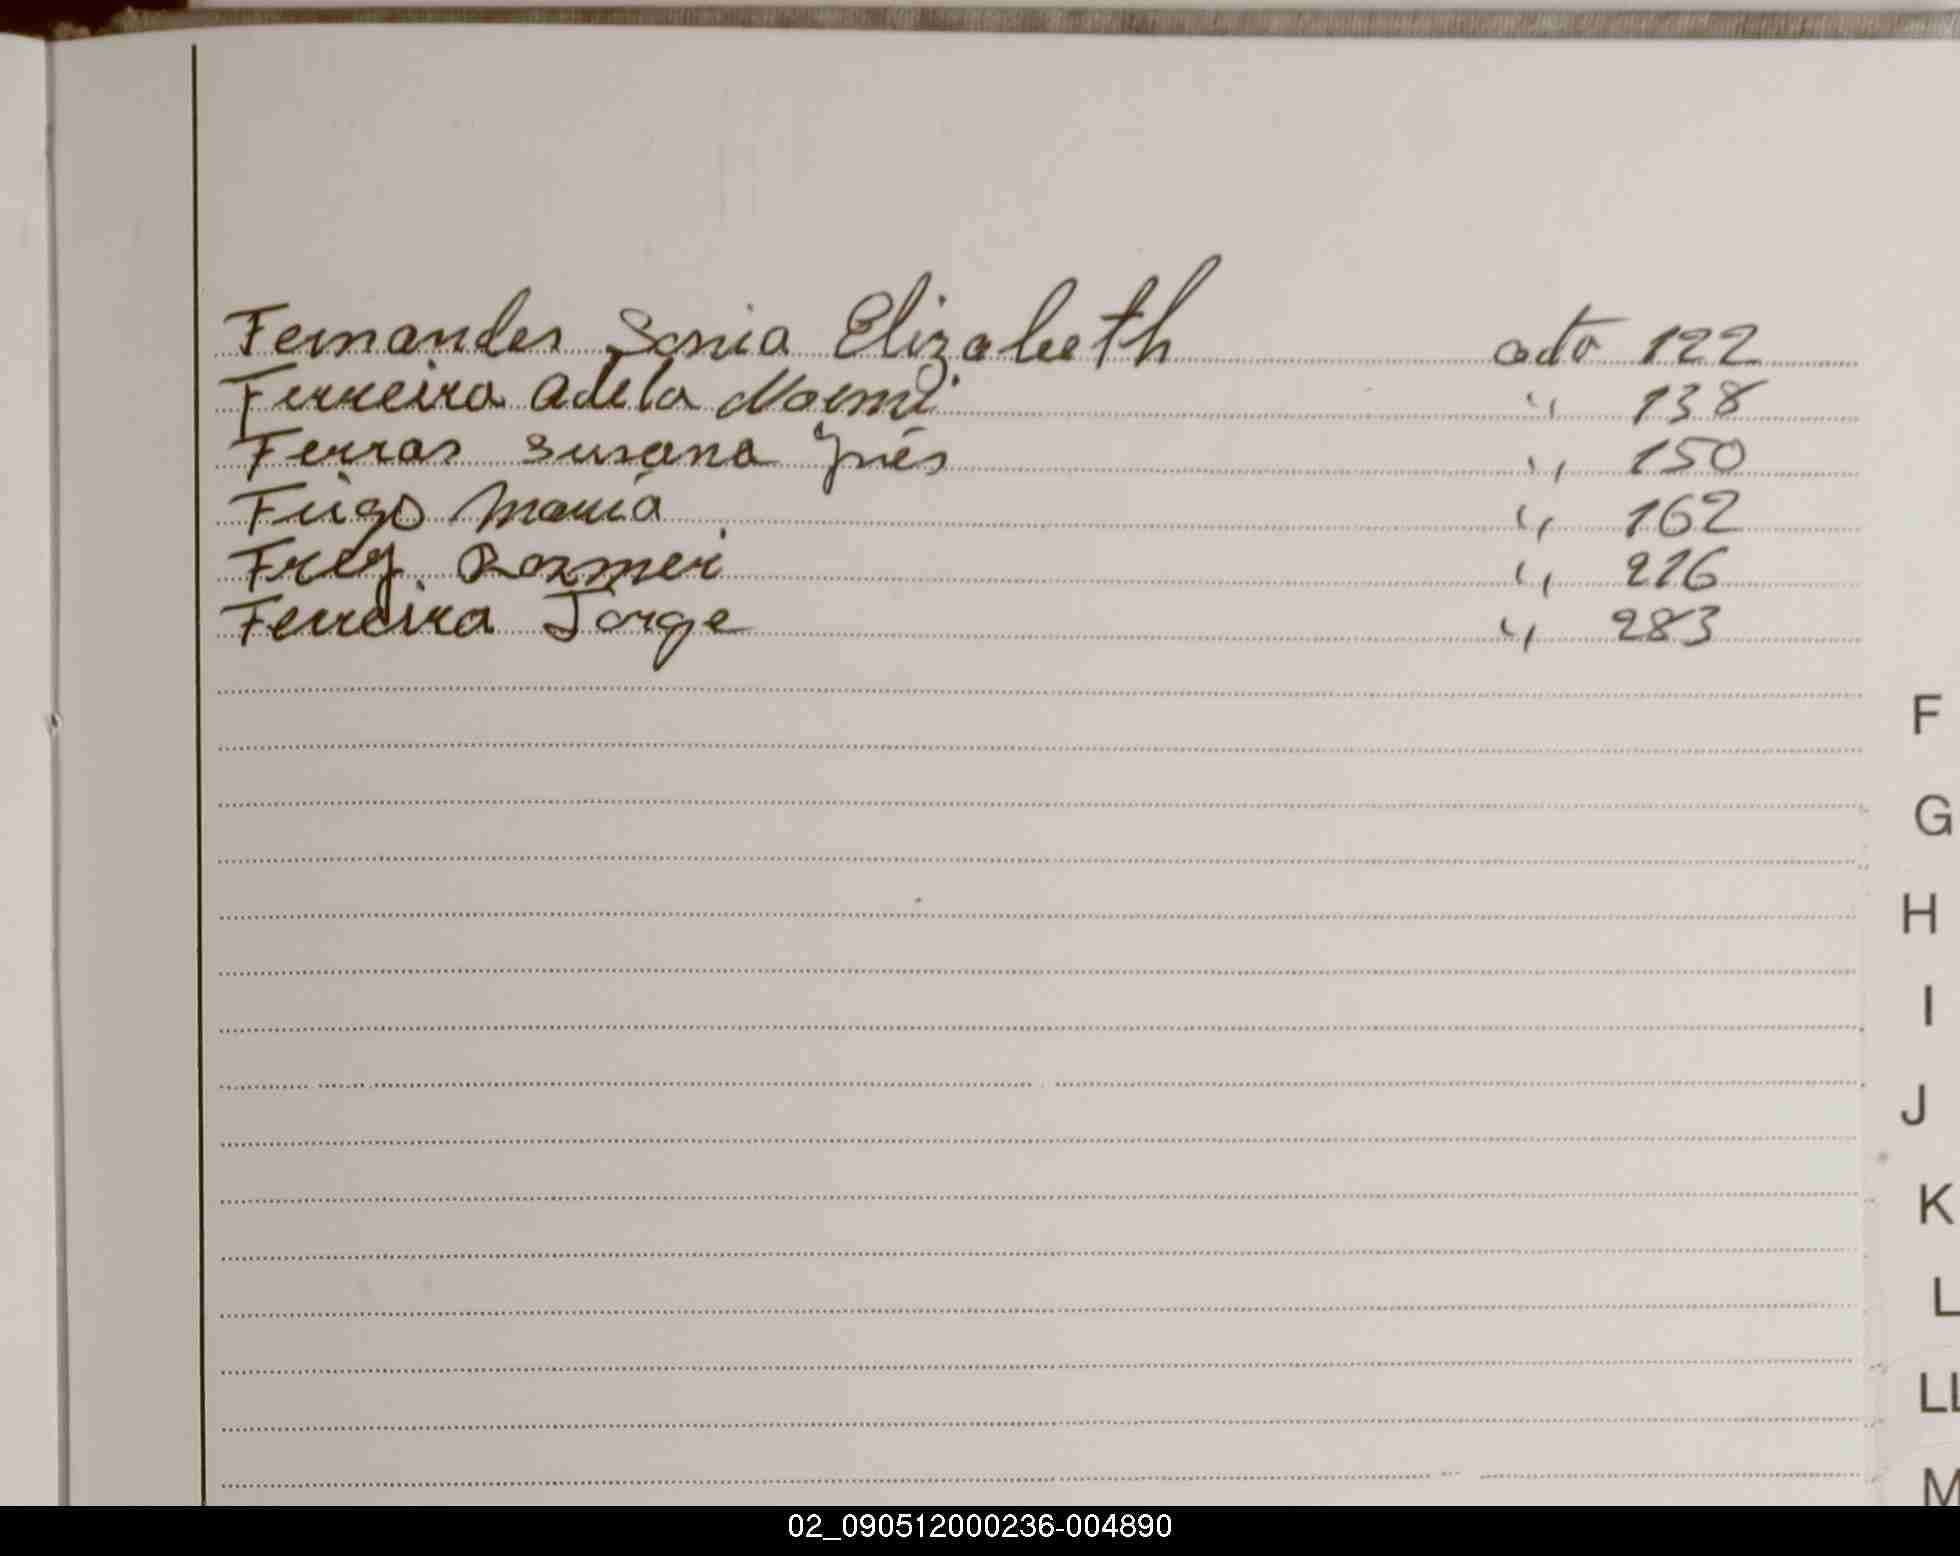 Fernandes Sonia Elizabeth acta 122
Ferreira Adela Noemi " 138
Ferras Susana Ynés " 150
María " 162
Frey Rosmeri " 216
Ferreira Jorge " 283
F
G
H
I
J
K
L
LL
M
02_090512000236-004890